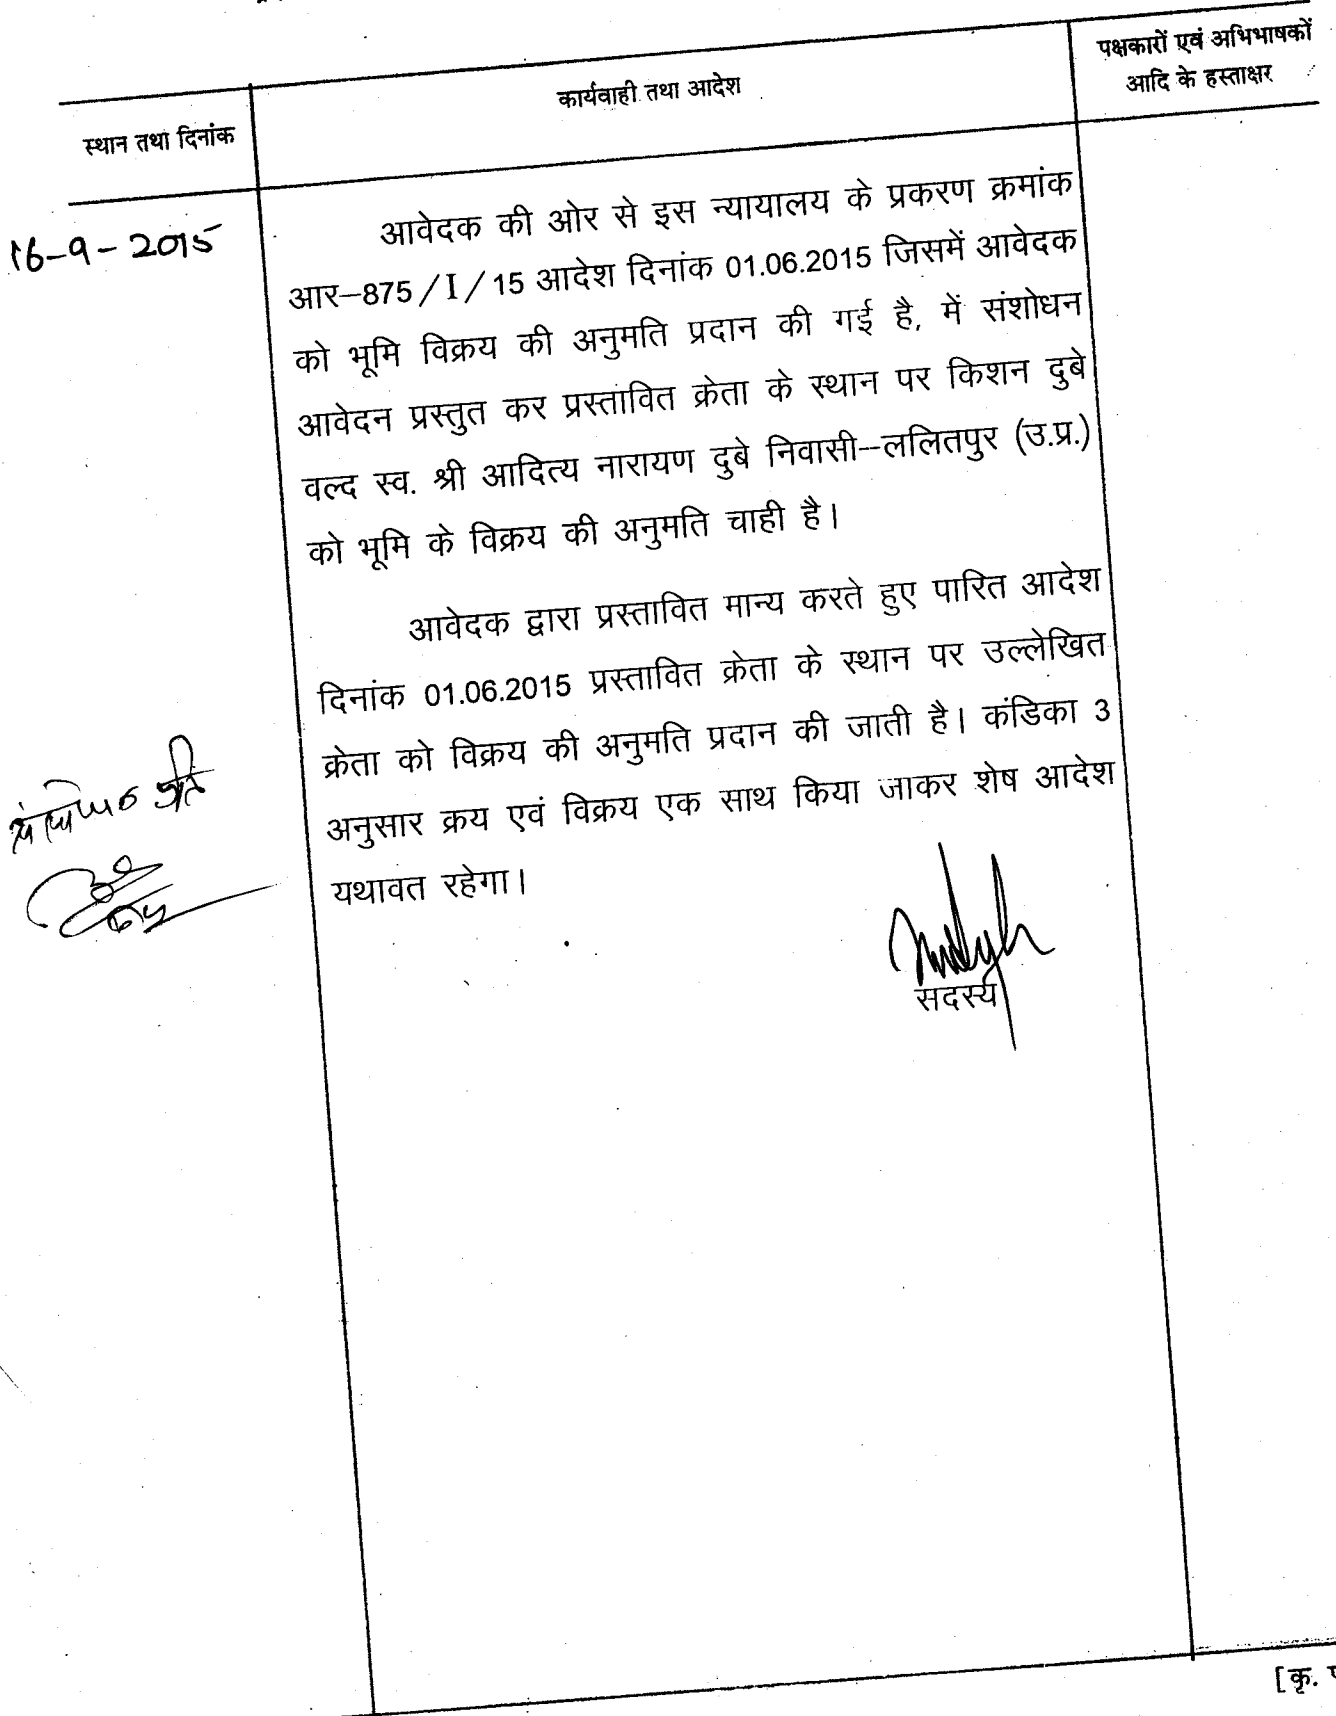 स्थान तथा दिनांक
कार्यवाही तथा आदेश
पक्षकारों एवं अभिभाषकों
आदि के हस्ताक्षर
16-9-2015
आवेदक की ओर से इस न्यायालय के प्रकरण क्रमांक
आर–875/I/15 आदेश दिनांक 01.06.2015 जिसमें आवेदक
को भूमि विक्रय की अनुमति प्रदान की गई है, में संशोधन
आवेदन प्रस्तुत कर प्रस्तावित क्रेता के स्थान पर किशन दुबे
वल्द स्व. श्री आदित्य नारायण दुबे निवासी–ललितपुर (उ.प्र.)
को भूमि के विक्रय की अनुमति चाही है।
आवेदक द्वारा प्रस्तावित मान्य करते हुए पारित आदेश
दिनांक 01.06.2015 प्रस्तावित क्रेता के स्थान पर उल्लेखित
क्रेता को विक्रय की अनुमति प्रदान की जाती है। कंडिका 3
अनुसार क्रय एवं विक्रय एक साथ किया जाकर शेष आदेश
यथावत रहेगा।
सदस्य
[कृ.